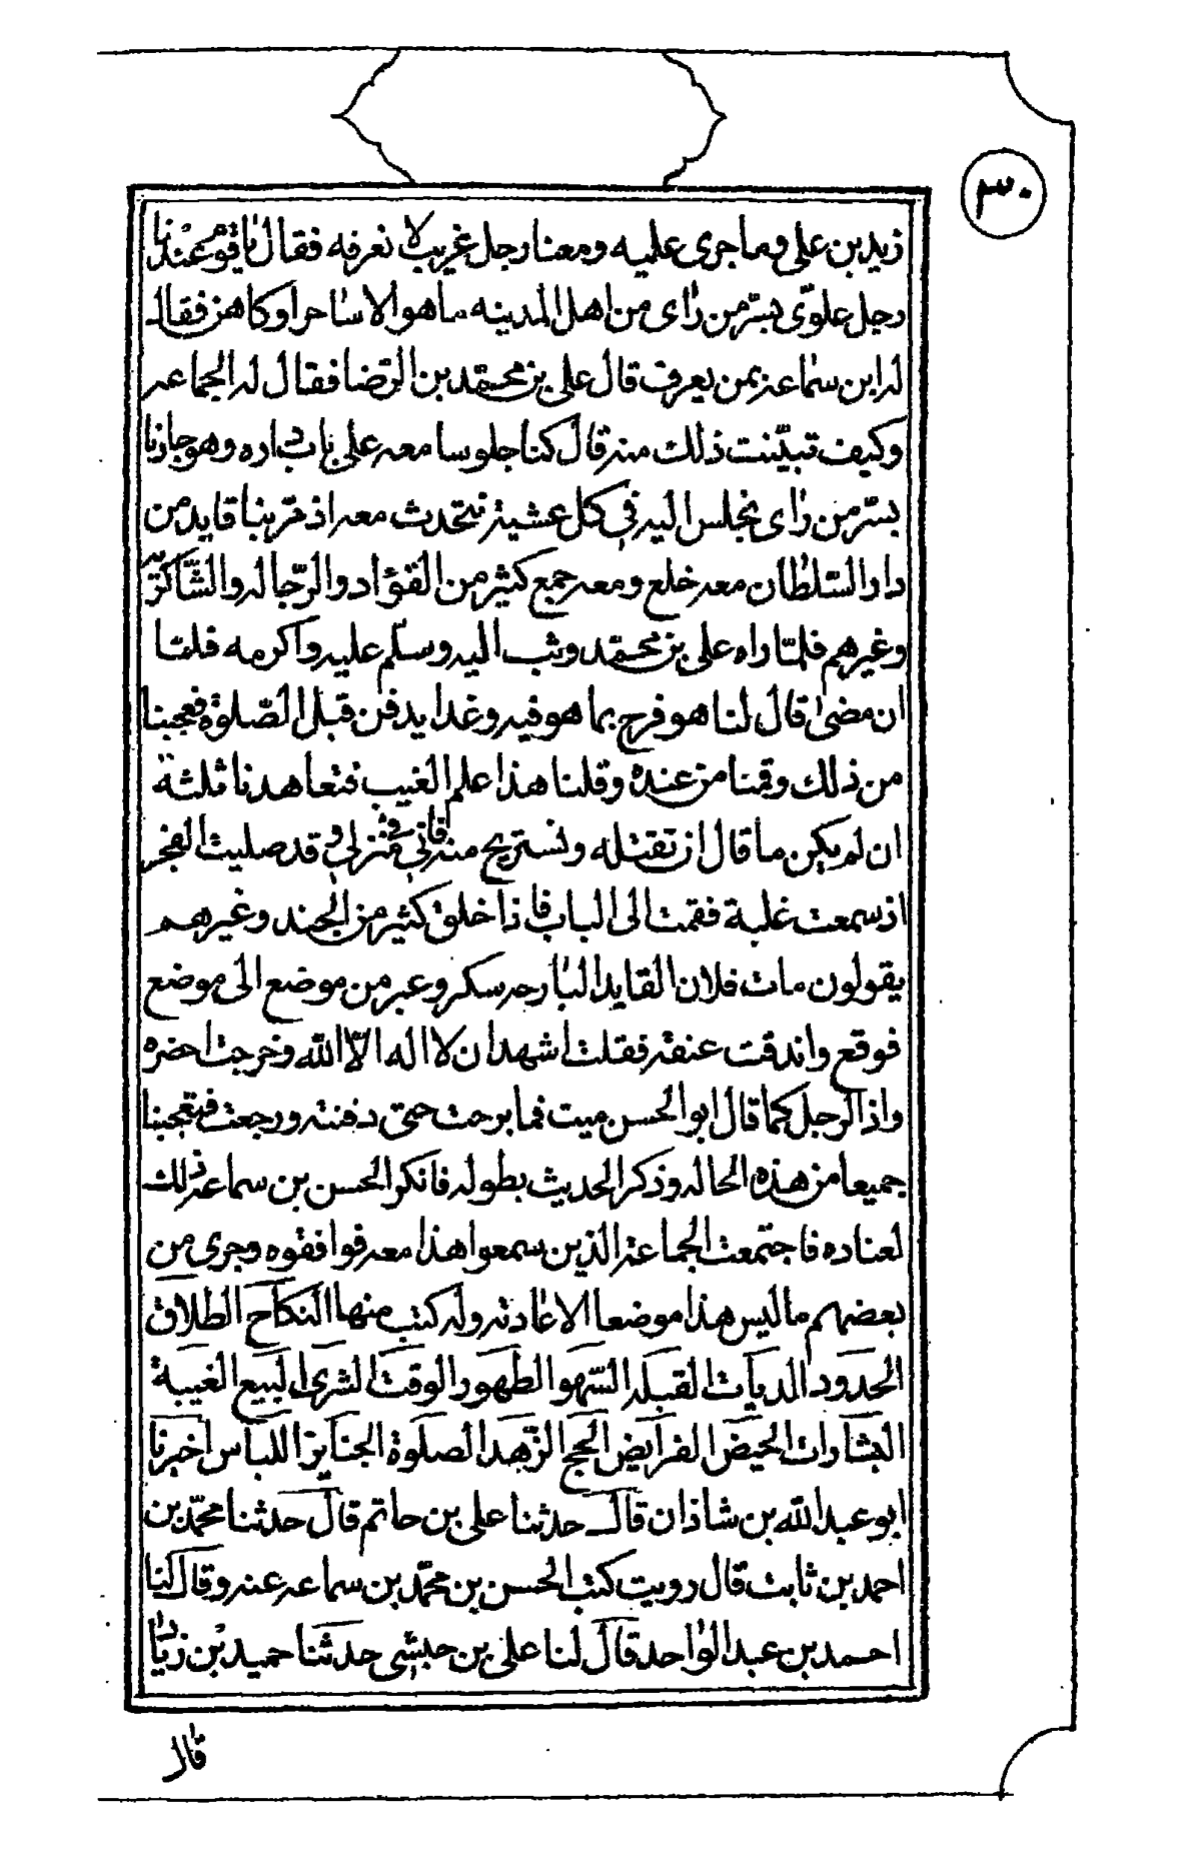 ٣٠
زيد بن على وما جرى عليه ومعنا رجل غريب لا نعرفه فقال يا قوم عندنا
رجل علوّى بسرّ من راى من اهل المدينه ما هو الا ساحر او كاهن فقال
له ابن سماعة بمن يعرف قال على بن محمّد بن الرّضا فقال له الجماعه
وكيف تبيّنت ذلك منه قال كنا جلوسا معه على باب داره وهو جارنا
بسرّ من راى نجلس اليه فى كل عشية نتحدث معه اذ مرّ بنا قايد من
دار السّلطان معه خلع ومعه جمع كثير من القوّاد والرّجاله والشّاكريّه
وغيرهم فلمّا راه على بن محمّد وثب اليه وسلّم عليه واكرمه فلمّا
ان مضى قال لنا هو فرح بما هو فيه وغدا يدفن قبل الصّلوة فعجبنا
من ذلك وقمنا من عنده وقلنا هذا علم الغيب فتعاهدنا ثلثة
ان لم يكن ما قال ان نقتله ونستريح منه فانى فى منزلى وقد صليت الفجر
اذ سمعت غلبة فقمت الى الباب فاذا خلق كثير من الجند وغيرهم
يقولون مات فلان القايد البارحه سكر وعبر من موضع الى موضع
فوقع واندقت عنقه فقلت اشهد ان لا اله الّا اللّه وخرجت احضره
واذا الرجل كما قال ابو الحسن ميت فما برحت حتى دفنته ورجعت فتعجبنا
جميعا من هذه الحاله وذكر الحديث بطوله فانكر الحسن بن سماعه ذلك
لعناده فاجتمعت الجماعة الذين سمعوا هذا معه فوافقوه وجرى من
بعضهم ما ليس هذا موضعا الاعادته وله كتب منها النكاح الطلاق
الحدود الديات القبله السّهو الطهور الوقت الشرى البيع الغيبة
البشارات الحيض الفرايض الحج الزهد الصلوة الجنايز اللباس اخبرنا
ابو عبد اللّه بن شاذان قال حدثنا على بن حاتم قال حدثنا محمّد بن
احمد بن ثابت قال رويت كتب الحسن بن محمّد بن سماعه عنه وقال لنا
احمد بن عبد الواحد قال لنا على بن حبشى حدثنا حميد بن زياد
قال